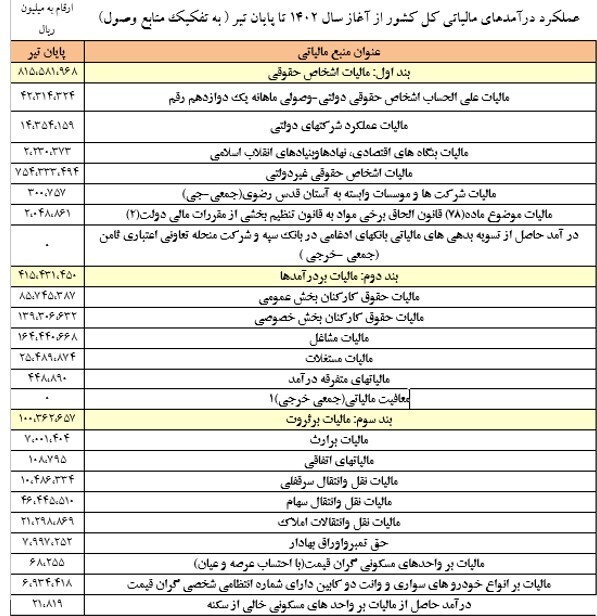 عملکرد درآمدهای مالیاتی کل کشور از آغاز سال ۱۴۰۲ تا پایان تیر ( به تفکیک منابع وصول)
ارقام به میلیون ریال
عنوان منبع مالیاتی پایان تیر
بند اول: مالیات اشخاص حقوقی ۸۱۵،۵۸۱،۹۶۸
مالیات علی الحساب اشخاص حقوقی دولتی-وصولی ماهانه یک دوازدهم رقم ۴۲،۳۱۴،۳۲۴
مالیات عملکرد شرکتهای دولتی ۱۴،۳۵۴،۱۵۹
مالیات بنگاه های اقتصادی، نهادهاوبنیادهای انقلاب اسلامی ۲،۲۳۰،۳۷۳
مالیات اشخاص حقوقی غیردولتی ۷۵۴،۳۳۳،۴۹۴
مالیات شرکت ها و موسسات وابسته به آستان قدس رضوی(جمعی-جی) ۳۰۰،۷۵۷
مالیات موضوع ماده(۷۸) قانون الحاق برخی مواد به قانون تنظیم بخشی از مقررات مالی دولت(۲) ۲،۰۴۸،۸۶۱
در آمد حاصل از تسویه بدهی های مالیاتی بانکهای ادغامی در بانک سپه و شرکت منحله تعاونی اعتباری ثامن (جمعی -خرجی ) ۰
بند دوم: مالیات بردرآمدها ۴۱۵،۴۳۱،۴۵۰
مالیات حقوق کارکنان بخش عمومی ۸۵،۷۴۵،۳۸۷
مالیات حقوق کارکنان بخش خصوصی ۱۳۹،۳۰۶،۶۳۲
مالیات مشاغل ۱۶۴،۴۴۰،۶۶۸
مالیات مستغلات ۲۵،۴۸۹،۸۷۴
مالیاتهای متفرقه درآمد ۴۴۸،۸۹۰
معافیت مالیاتی(جمعی خرجی)۱ ۰
بند سوم: مالیات برثروت ۱۰۰،۳۶۲،۶۵۷
مالیات برارث ۷،۰۰۱،۴۰۴
مالیاتهای اتفاقی ۱۰۸،۷۹۵
مالیات نقل وانتقال سرقفلی ۱۰،۴۸۶،۳۳۴
مالیات نقل وانتقال سهام ۴۶،۴۴۵،۵۱۰
مالیات نقل وانتقالات املاک ۲۱،۲۹۸،۸۶۹
حق تمبرواوراق بهادار ۷،۹۹۷،۲۵۲
مالیات بر واحدهای مسکونی گران قیمت(با احتساب عرصه و عیان) ۶۸،۲۵۵
مالیات بر انواع خودرو های سواری و وانت دو کابین دارای شماره انتظامی شخصی گران قیمت ۶،۹۳۴،۴۱۸
درآمد حاصل از مالیات بر واحد های مسکونی خالی از سکنه ۲۱،۸۱۹